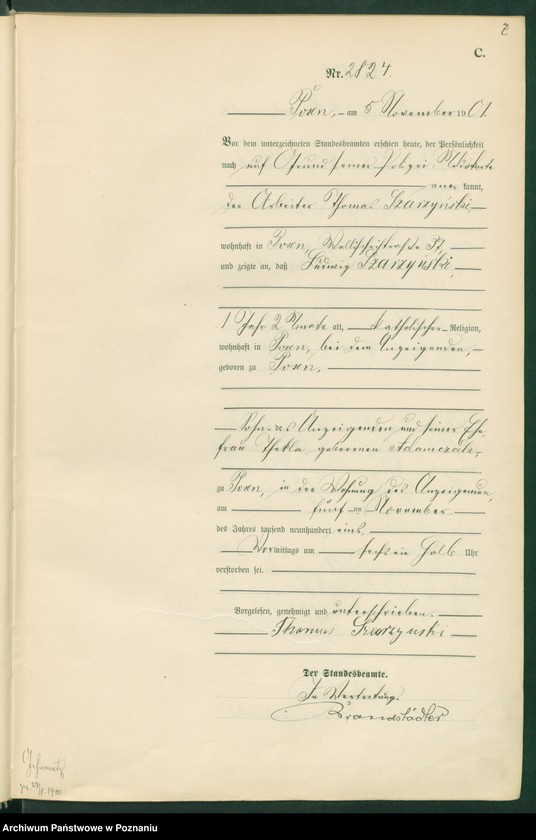 C.
Nr. 2824.
Posen, am 5 November 1901.
Vor dem unterzeichneten Standesbeamten erschien heute, der Persönlichkeit
nach auf Grund seiner Polizei
kannt,
der Arbeiter Thomas Szarzyński,
wohnhaft in Posen, Wallischeistraße
und zeigte an, daß Ludwig Szarzyński,
1 Jahr 2 Monate alt, katholischer Religion,
wohnhaft in Posen, bei dem Anzeigenden,
geboren zu Posen,
Sohn des Anzeigenden und seiner Ehe-
frau Thekla geborenen Adamczak,
zu Posen, in der Wohnung des Anzeigenden,
am fünften November
des Jahres tausend neunhundert eins,
Vormittags um sechs ein halb Uhr
verstorben sei.
Vorgelesen, genehmigt und unterschrieben.
Thomas Szarzynski
Der Standesbeamte.
In Vertretung.
Brandstädter
Archiwum Państwowe w Poznaniu